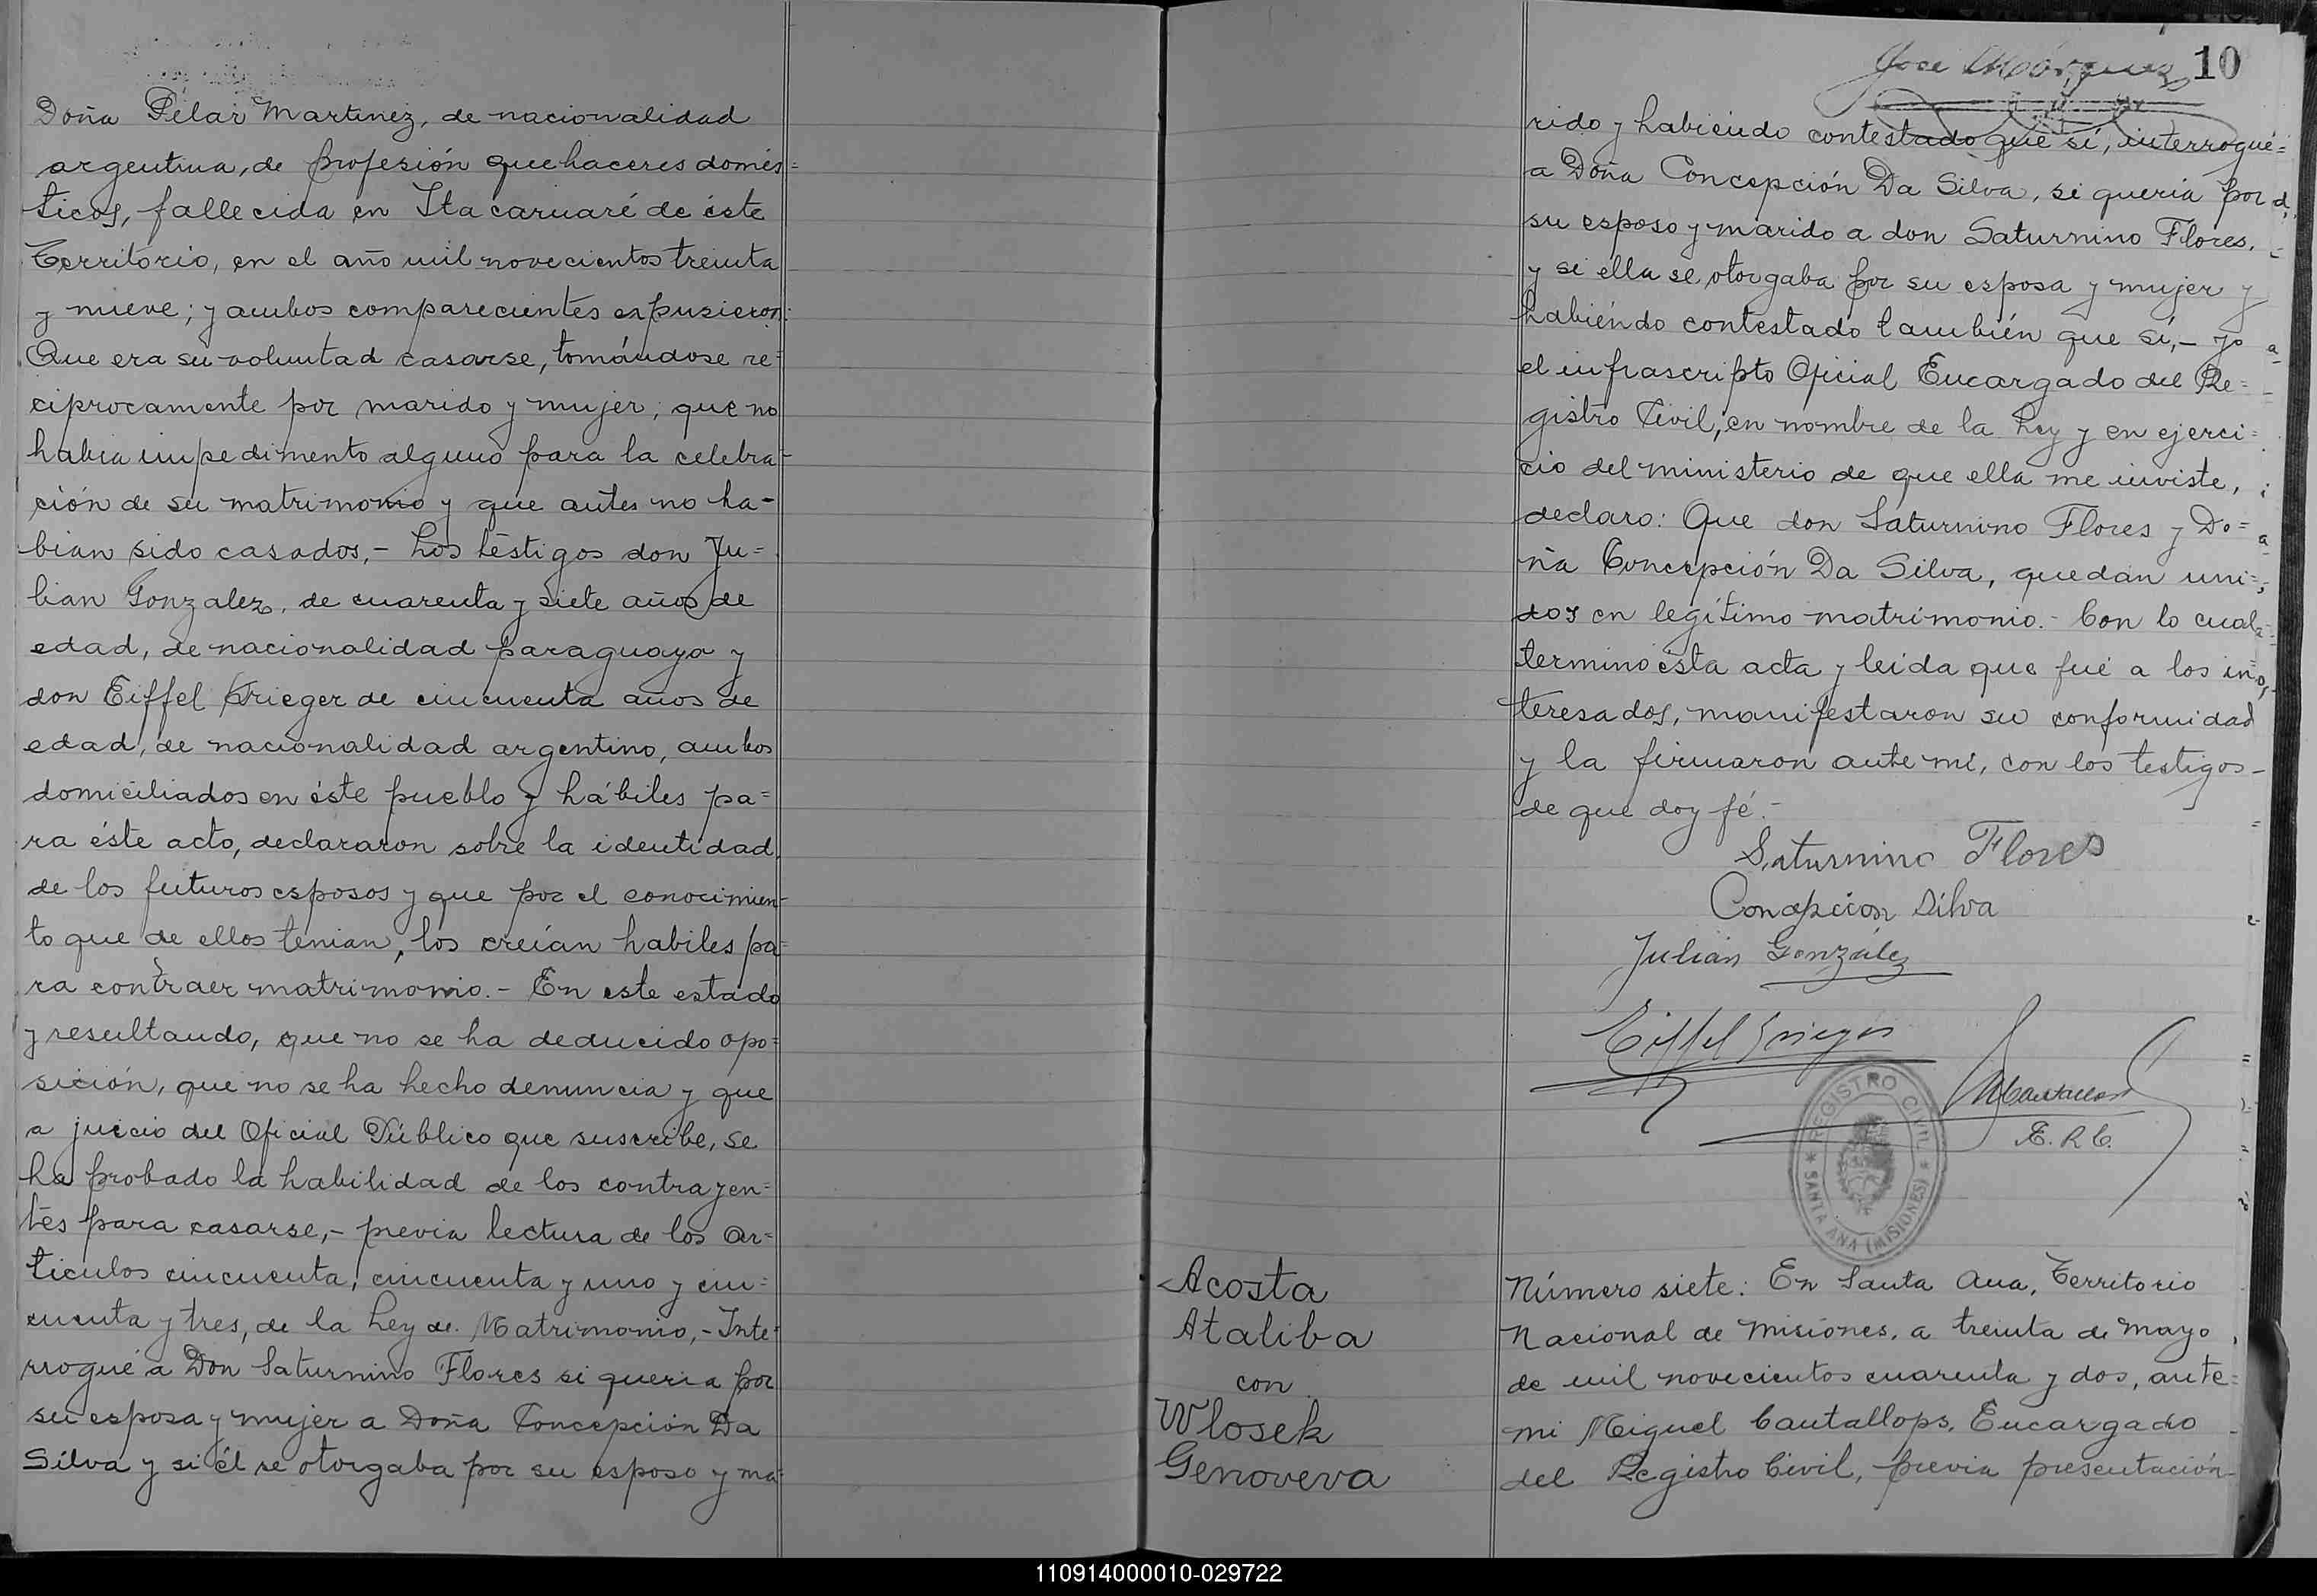 Doña Pilar Martinez, de nacionalidad
argentina, de profesión quehaceres domés=
ticos, fallecida en Itacaruaré de éste
Territorio, en el año mil novecientos treinta
y nueve; y ambos comparecientes expusieron:
Que era su voluntad casarse, tomándose re=
ciprocamente por marido y mujer; que no
habia impedimento alguno para la celebra-
ción de su matrimonio y que antes no ha-
bian sido casados,- Los téstigos don Ju=
lian Gonzalez, de cuarenta y siete años de
edad, de nacionalidad paraguaya y
don Eiffel Krieger de cincuenta años de
edad, de nacionalidad argentino, ambos
domiciliados en éste pueblo y hábiles pa=
ra éste acto, declararon sobre la identidad
de los futuros esposos y que por el conocimien-
to que de ellos tenian, los creían habiles pa=
ra contraer matrimonio.- En este estado
y resultando, que no se ha deducido opo=
sición, que no se ha hecho denuncia y que
a juicio del Oficial Público que suscribe, se
ha probado la habilidad de los contrayen=
tes para casarse,- previa lectura de los ar=
ticulos cincuenta, cincuenta y uno y cin=
cuenta y tres, de la Ley de Matrimonio,- Inte=
rrogué a Don Saturnino Flores si queria por
su esposa y mujer a Doña Concepción Da
Silva y si él se otorgaba por su esposo y ma=
Jose Márquez 10
rido y habiendo contestado que sí, interrogué=
a Doña Concepción Da Silva, si queria por
su esposo y marido a don Saturnino Flores,
y si ella se otorgaba por su esposa y mujer y
habiéndo contestado también que sí,- yo
el infrascripto Oficial Encargado del Re=
gistro Civil, en nombre de la Ley y en ejerci=
cio del ministerio de que ella me inviste,
declaro: Que don Saturnino Flores y Do=
ña Concepción Da Silva, quedan uni=
dos en legítimo matrimonio.- Con lo cual
termino ésta acta y leida que fué a los in=
teresados, manifestaron su conformidad
y la firmaron ante mi, con los testigos-
de que doy fé.-
Saturnino Flores
Concepcion Silva
Julian González
Eiffel Krieger
MCantallops
E. R. C.
REGISTRO CIVIL
* SANTA ANA (MISIONES) *
Acosta
Ataliba
con
Wlosek
Genoveva
Número siete: En Santa Ana, Territorio
Nacional de Misiones, a treinta de Mayo
de mil novecientos cuarenta y dos, ante=
mi Miguel Cantallops, Encargado
del Registro Civil, previa presentación-
110914000010-029722